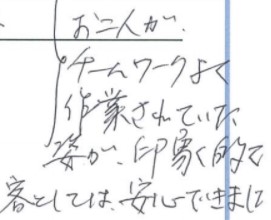 お二人が、
チームワークよく
作業されていた
姿が、印象的で
客としては、安心できまし